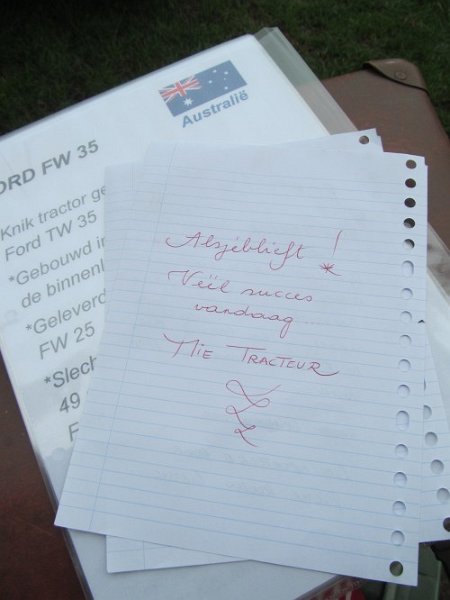 Australië
ORD FW 35
Knik tractor ge
Ford TW 35
*Gebouwd in
de binnenl
*Geleverd
FW 25
*Slech
49
F
Alsjeblieft !
Veel succes
vandaag
MIE TRACTEUR